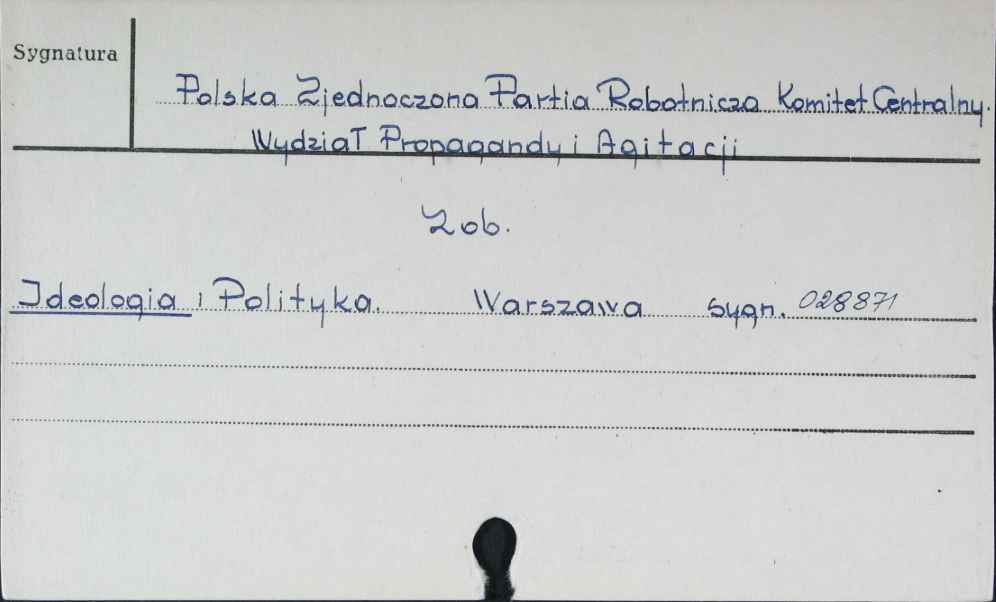 Sygnatura
Polska Zjednoczona Partia Robotnicza Komitet Centralny.
Wydział Propagandy i Agitacji
Zob.
Ideologia i Polityka. Warszawa sygn. 028871